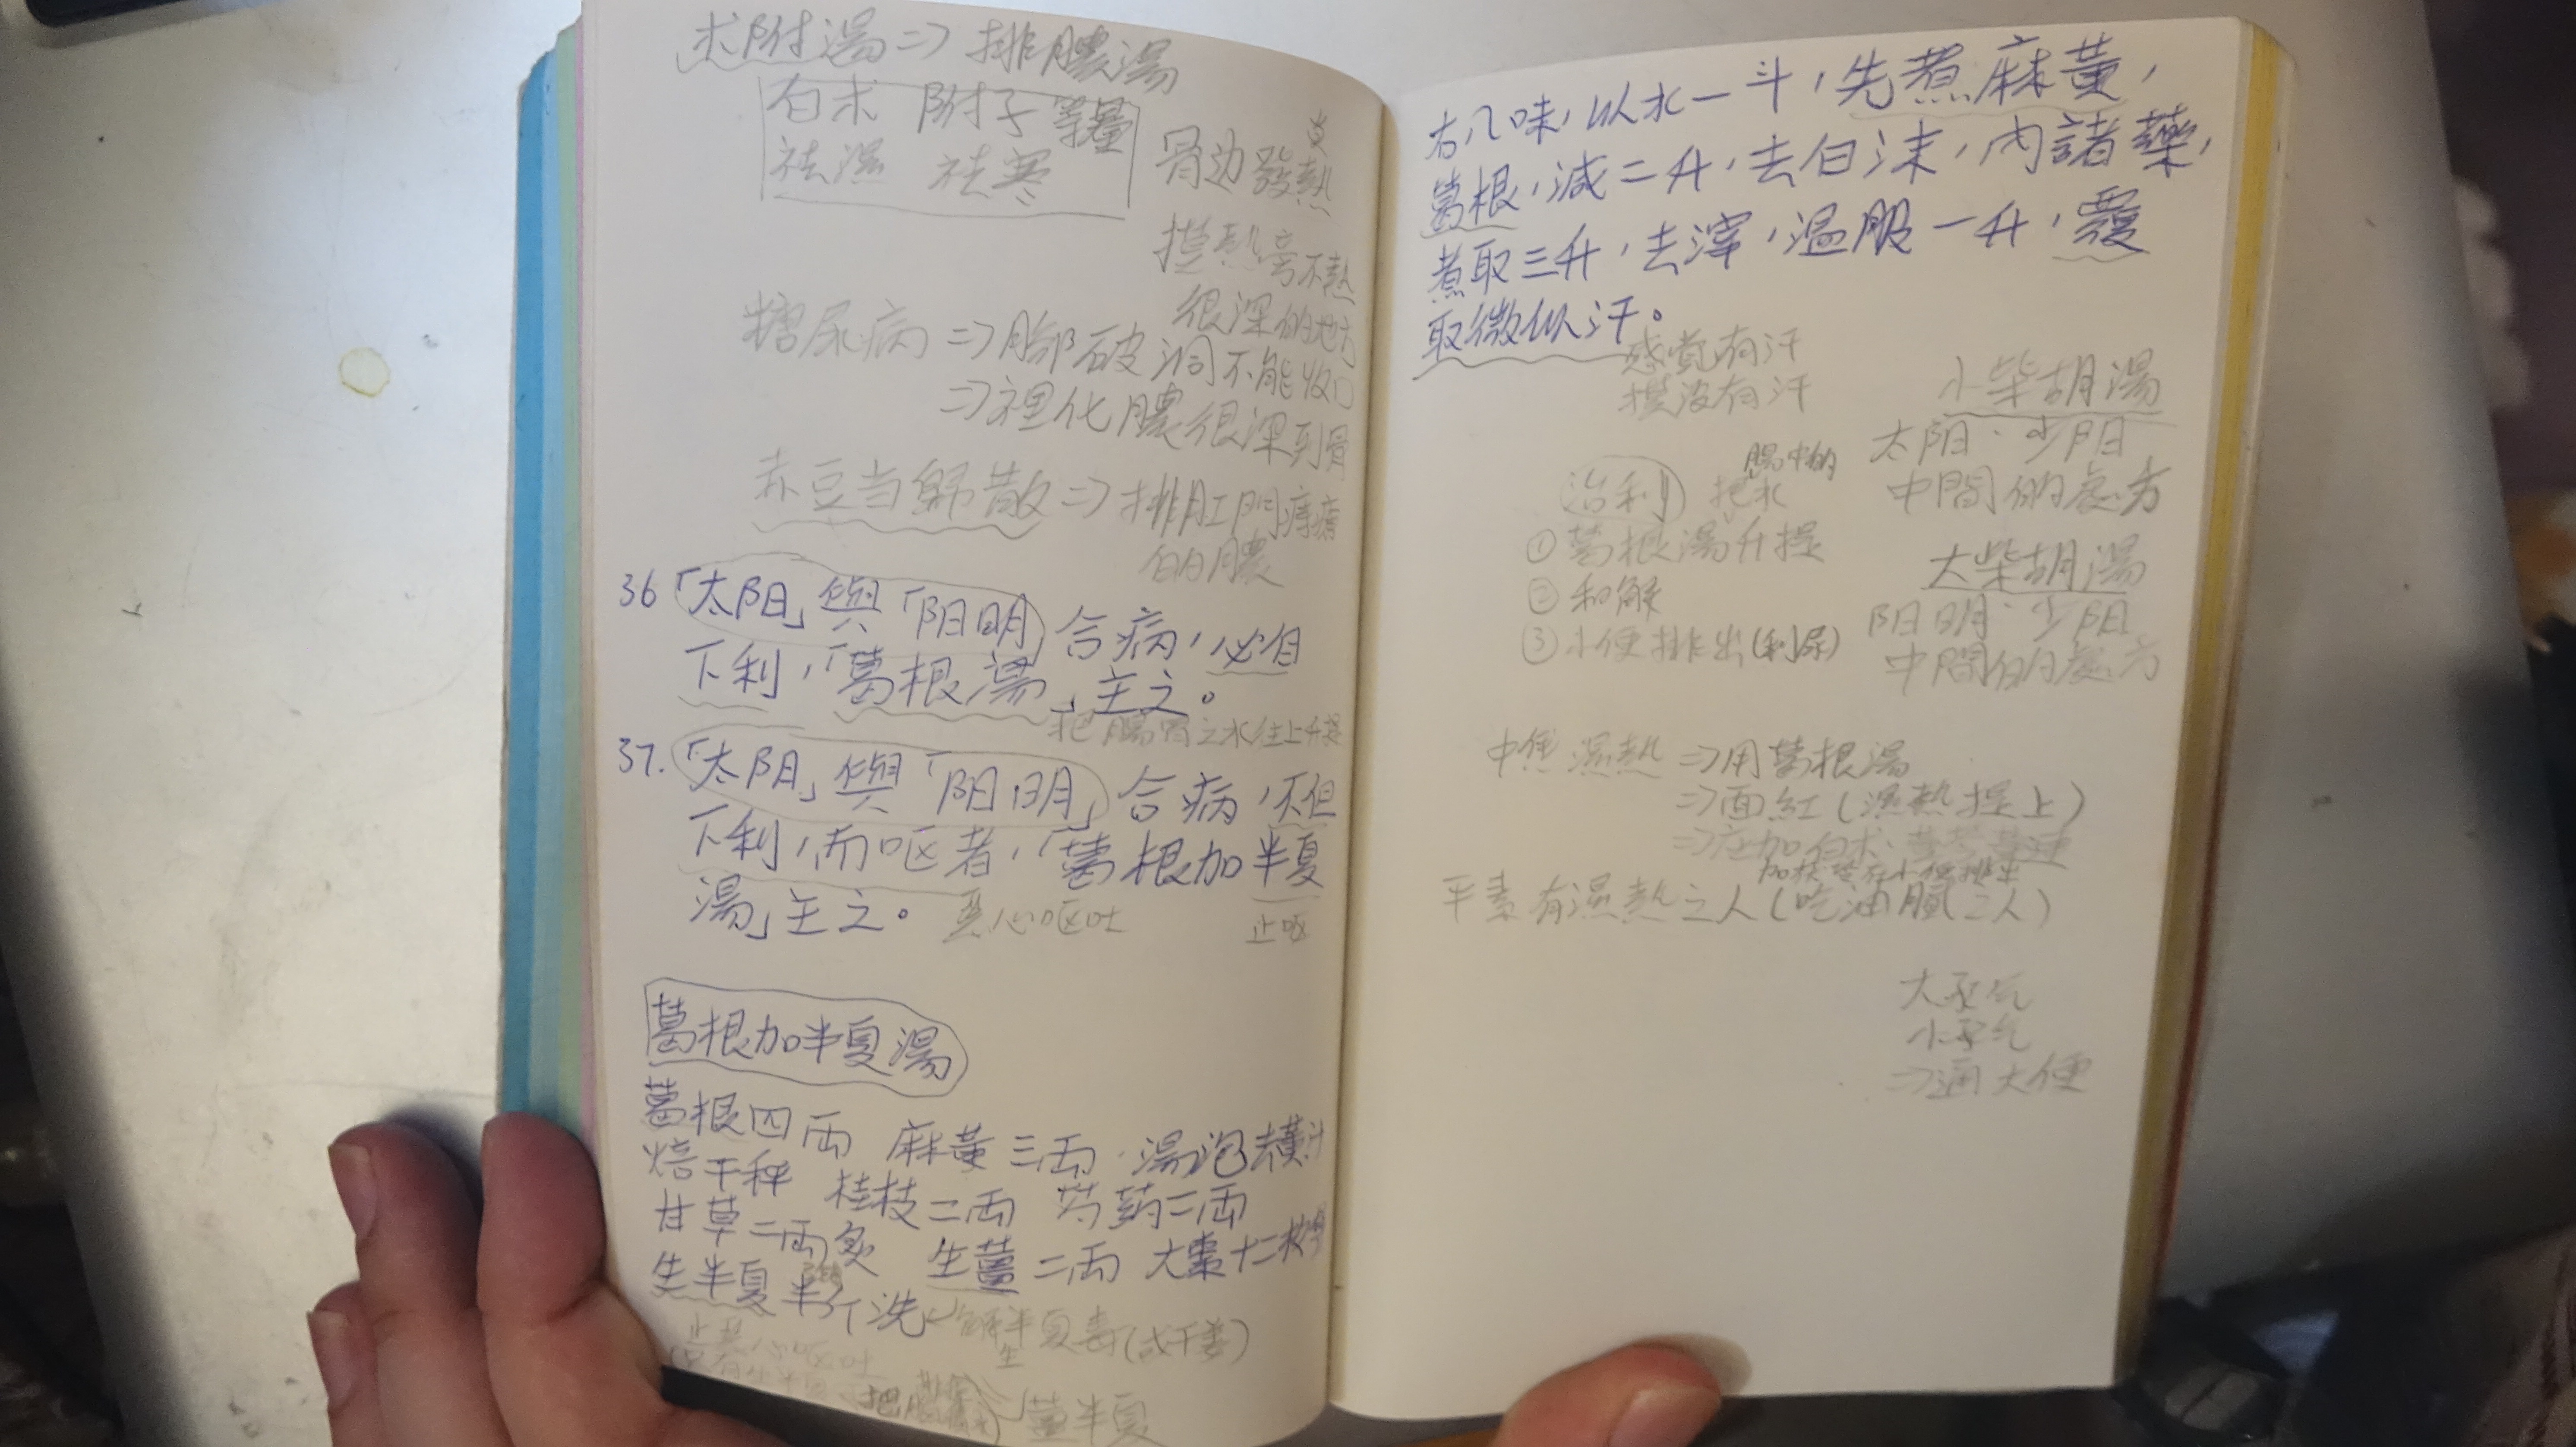 朮附湯⇒排膿湯
白朮 附子 等量
祛濕 祛寒
骨边發熱
摸熱旁不熱
很深的地方
糖尿病⇒腳破洞不能收口
⇒裡化膿很深到骨
赤豆当歸散⇒排肛門痔瘡
的膿
36「太阳」與「阳明」合病,必自
下利,「葛根湯」主之。
把腸胃之水往上升提
37.「太阳」與「阳明」合病,不但
下利,而呕者,「葛根加半夏
湯」主之。 惡心呕吐 止呕
葛根加半夏湯
葛根四両 麻黃三両·湯泡去黃汁
焙干秤 桂枝二両 芍药二両
甘草二両炙 生薑二両 大棗十二枚
生半夏半斤洗
解生半夏毒(或干姜)
薑半夏
右八味,以水一斗,先煮麻黃,
葛根,減二升,去白沫,內諸藥,
煮取三升,去滓,温服一升,覆
取微似汗。
感觉有汗
摸没有汗
小柴胡湯
太阳·少阳
中間的處方
治利 把腸中的水
①葛根湯升提
②和解
③小便排出(利尿)
大柴胡湯
阳明·少阳
中間的處方
中焦濕熱⇒用葛根湯
⇒面紅(濕熱提上)
⇒应加白朮·黃芩黃連
平素有濕熱之人(吃油膩之人)
大承气
小承气
⇒通大便